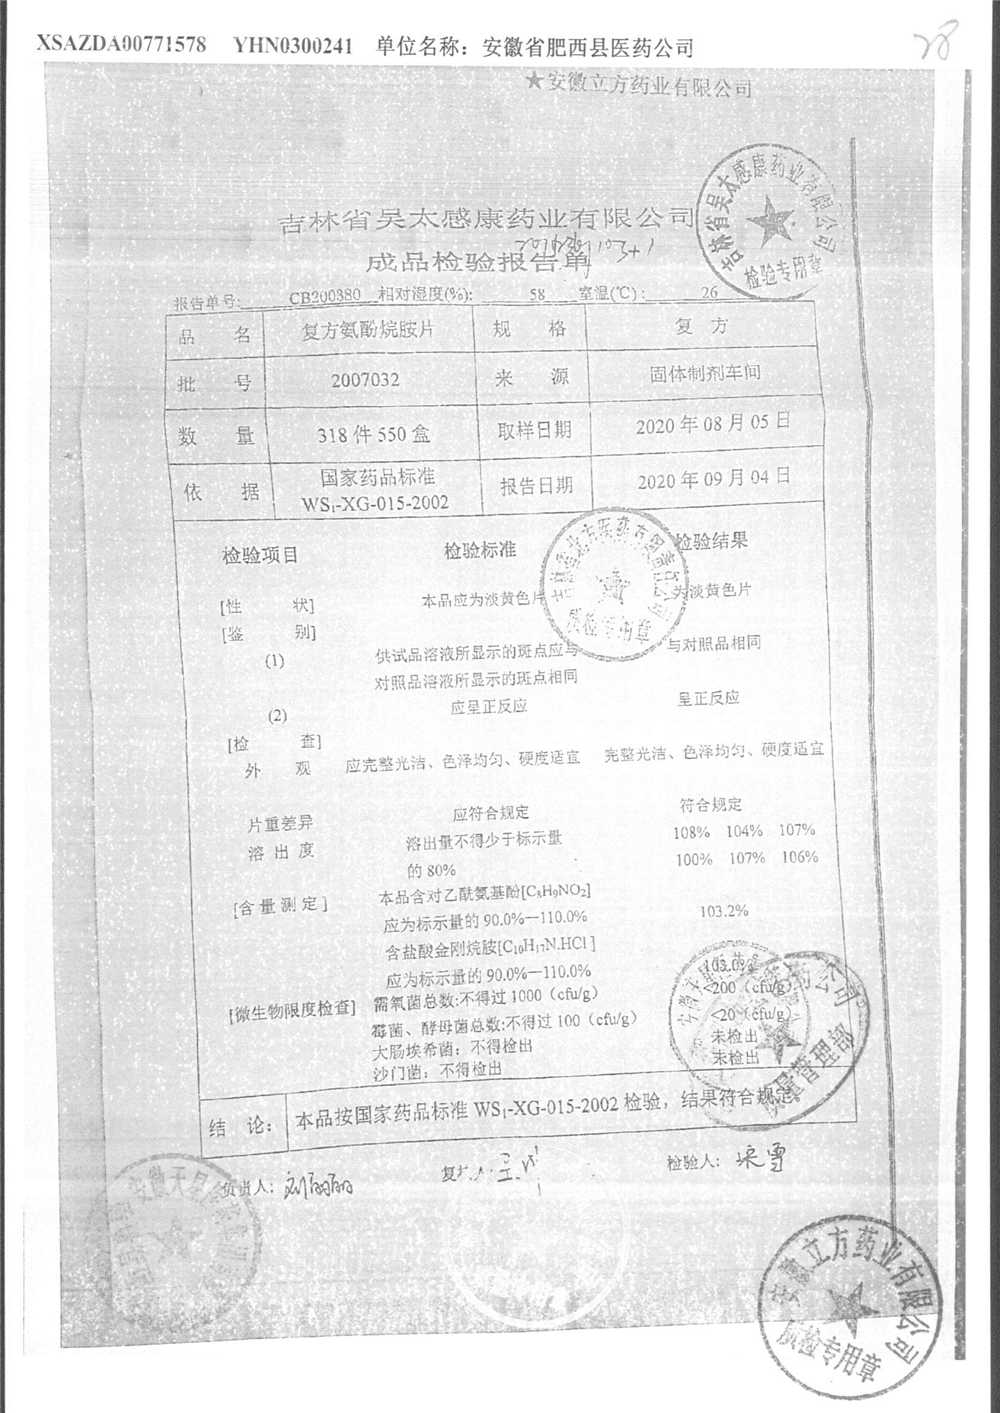 XSAZDA00771578 YHN0300241 单位名称：安徽省肥西县医药公司
28
★安徽立方药业有限公司
吉林省吴太感康药业有限公司
成品检验报告单
吉林省吴太感康药业有限公司
检验专用章
报告单号: CB200380 相对湿度(%): 58 室温(℃): 26
品 名 复方氨酚烷胺片 规 格 复 方
批 号 2007032 来 源 固体制剂车间
数 量 318 件 550 盒 取样日期 2020 年 08 月 05 日
依 据 国家药品标准 WS₁-XG-015-2002 报告日期 2020 年 09 月 04 日
检验项目 检验标准 检验结果
质检专用章
[性 状] 本品应为淡黄色片 为淡黄色片
[鉴 别]
(1) 供试品溶液所显示的斑点应与 与对照品相同
对照品溶液所显示的斑点相同
(2) 应呈正反应 呈正反应
[检 查]
外 观 应完整光洁、色泽均匀、硬度适宜 完整光洁、色泽均匀、硬度适宜
片重差异 应符合规定 符合规定
溶 出 度 溶出量不得少于标示量 108% 104% 107%
的 80% 100% 107% 106%
[含 量 测 定] 本品含对乙酰氨基酚[C₈H₉NO₂]
应为标示量的 90.0%—110.0% 103.2%
含盐酸金刚烷胺[C₁₀H₁₇N.HCl]
应为标示量的 90.0%—110.0% 103.0%
[微生物限度检查] 需氧菌总数:不得过 1000（cfu/g） <200（cfu/g）
霉菌、酵母菌总数:不得过 100（cfu/g） <20（cfu/g）
大肠埃希菌：不得检出 未检出
沙门菌：不得检出 未检出
质量管理部
结 论: 本品按国家药品标准 WS₁-XG-015-2002 检验，结果符合规定。
负责人: 刘丽丽 检验人:
安徽立方药业有限公司
质检专用章